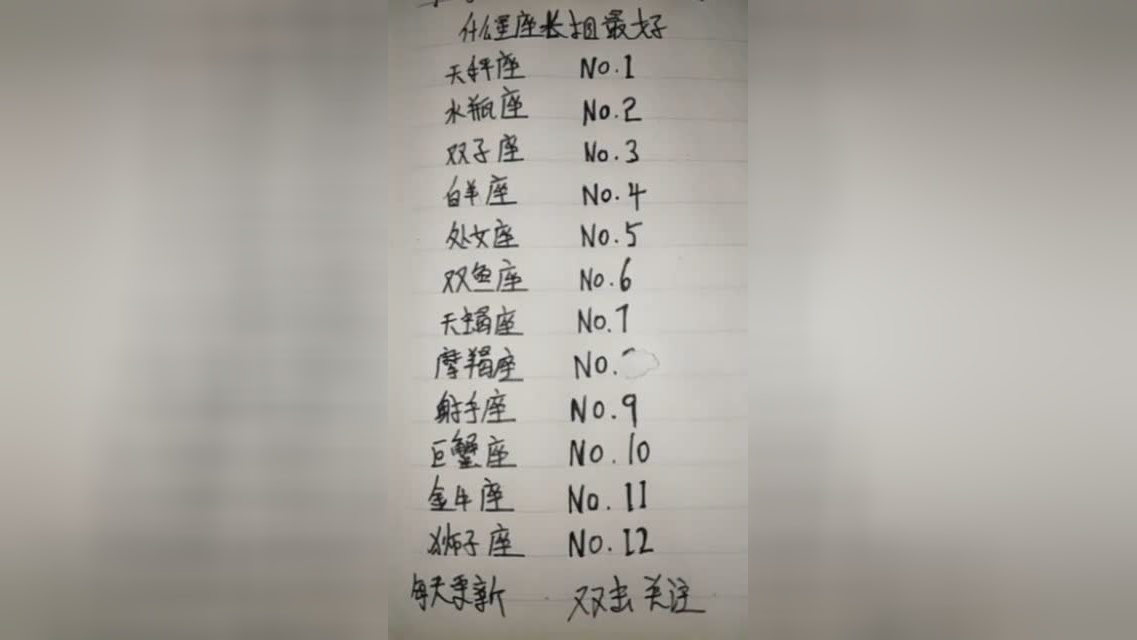 什么星座长相最好
天秤座 No.1
水瓶座 No.2
双子座 No.3
白羊座 No.4
处女座 No.5
双鱼座 No.6
天蝎座 No.7
摩羯座 No.
射手座 No.9
巨蟹座 No.10
金牛座 No.11
狮子座 No.12
每天更新 双击关注